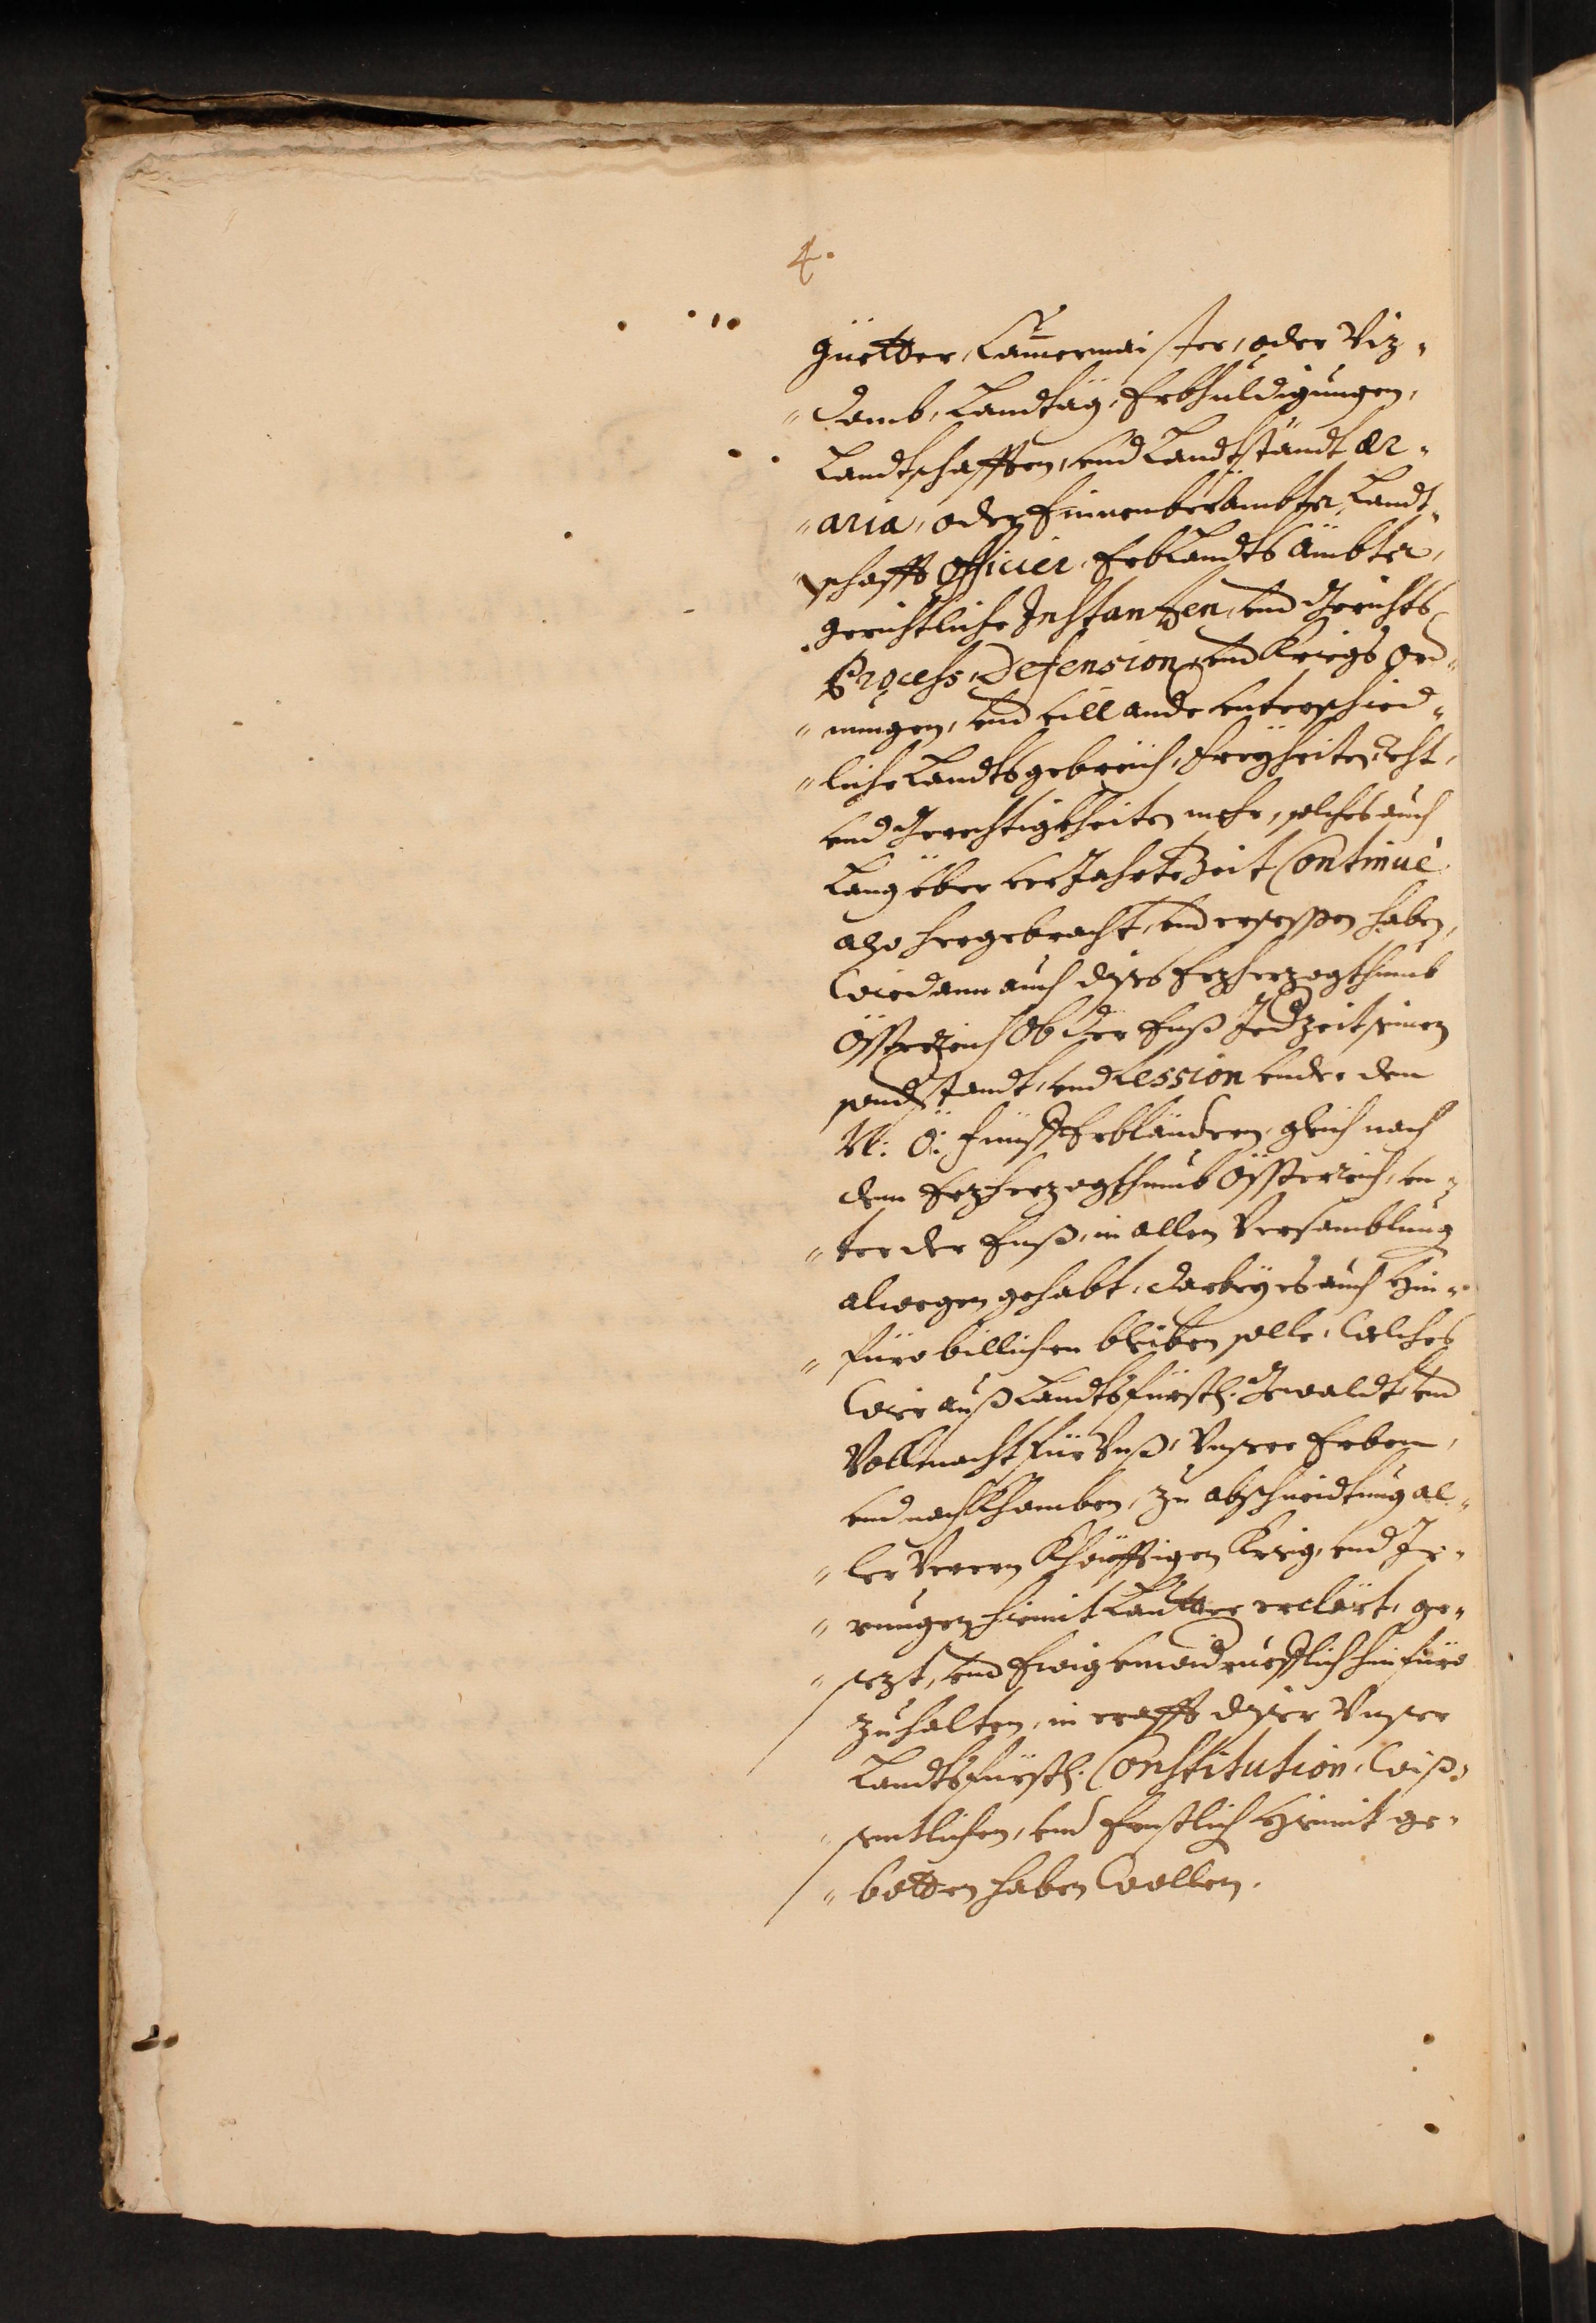 4.
güetter, Cammermaister, oder Viz=
=domb, Landtäg, Erbhuldigungen,
Landtschafften, und Landtständt Ær=
=aria, oder Einnemberämbter, Landt=
=schafft Officier, Erblandts Ämbter,
gerichtliche Instanzen, und Gerichts
Process, Defension, und Kriegs Ord=
=nungen, und vill ande unterschied=
=liche Landtsgebreüch, Freyheiten,
und Gerechtigkheiten mehr, solches auch
Lang über ver Jahrte Zeit Continué
also hergebracht, und ersessen haben,
Wie dann auch dises Erzherzogthumb
Össterreich Ob der Enß Jedzeit seinen
sondstandt, und Session under den
N: Ö: Fünff Erbländern, gleich nach
dem Erzherzogthumb Össterreich, un=
=ter der Enß, in allen Versamblung
alweegen gehabt, darbey es auch Hin=
=füro billichen bleiben solle, Welches
Wir auß Landtsfürstl: Gewaldt und
Vollmacht für Unß, Unsere Erben,
und nachkhomben, zu abschneidtung al=
=ler Verern Khönfftigen Krieg, und Ir=
=rungen hiemit Lautter erclärt, ge=
=sezt, und Ewig unwiderueflich hinfüro
zuhalten, in crafft diser Unser
Landtsfürstl: Constitution, Wiß=
=sentlichen, und Ernstlich Hiemit ge=
=botten haben Wollen.